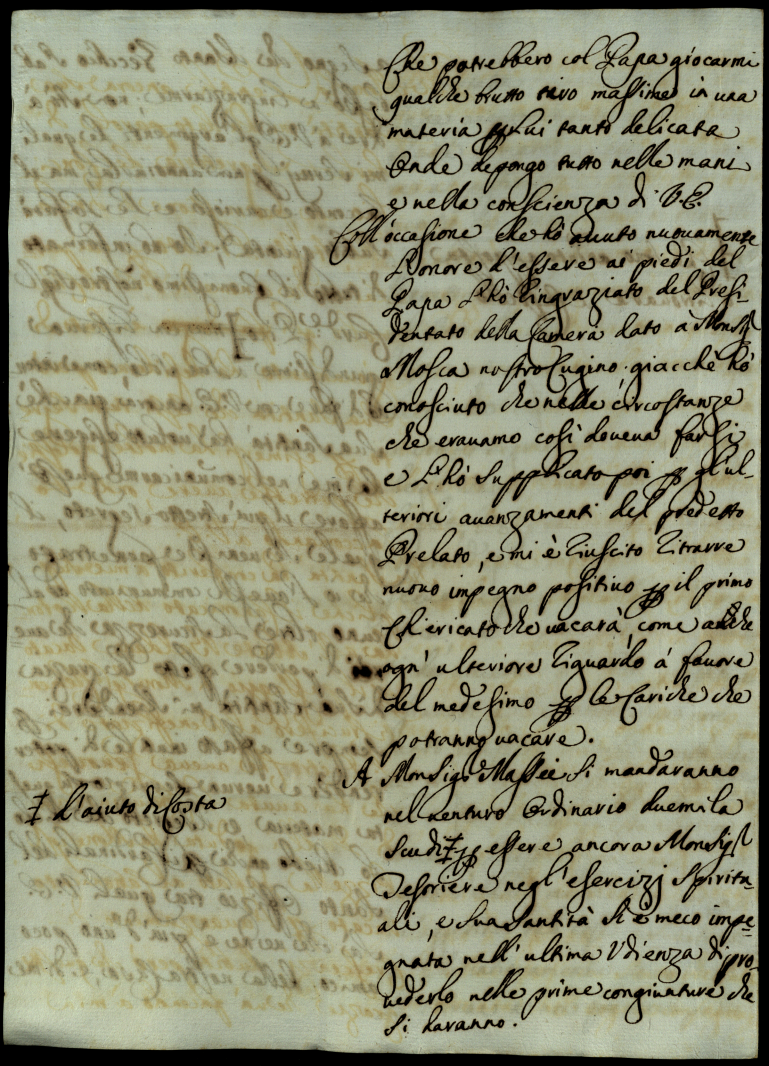 Che potrebbero col Papa giocarmi
qualche brutto tiro massime in una
materia per lui tanto delicata
Onde depongo tutto nelle mani
e nella conscienza di V. E.
Coll'occasione che hò auuto nuouamente
l'onore d'essere ai piedi del
Papa l'hò ringraziato del Presi-
dentato della Camera dato à Monsig.r
Mosca nostro Cugino giacchè hò
conosciuto che nelle circostanze
che erauamo così doueua farsi
e l'hò supplicato poi per gl'ul-
teriori auanzamenti del predetto
Prelato, e mi è riuscito ritrarre
nuouo impegno positiuo per il primo
Chiericato che uacarà, come anche
ogn' ulteriore riguardo á fauore
del medesimo per le Cariche che
potranno uacare.
A Monsig.r Massei si mandaranno
nel uenturo Ordinario duemila
scudi ‡ per essere ancora Monsig.r
Tesoriere negl'esercizj spiritu-
ali, e Sua Santità si è meco impe-
gnata nell'ultima Udienza di pro-
uederlo nelle prime congiunture che
si daranno.
‡ d'aiuto di Costa